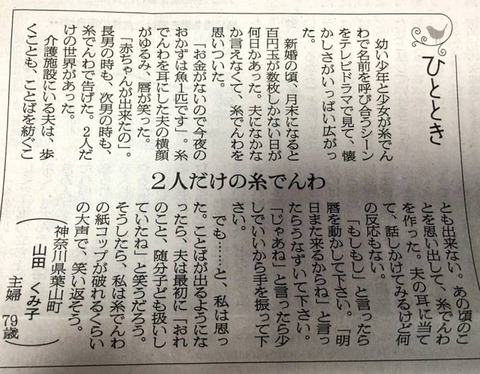 ひととき
幼い少年と少女が糸でん
わで名前を呼び合うシーン
をテレビドラマで見て、懐
かしさがいっぱい広がっ
た。
新婚の頃、月末になると
百円玉が数枚しかない日が
何日かあった。夫になかな
か言えなくて、糸でんわを
思いついた。
「お金がないので今夜の
おかずは魚1匹です」。糸
でんわを耳にした夫の横顔
がゆるみ、唇が笑った。
「赤ちゃんが出来たの」。
長男の時も、次男の時も、
糸でんわで告げた。2人だ
けの世界があった。
介護施設にいる夫は、歩
くことも、ことばを紡ぐこ
2人だけの糸でんわ
とも出来ない。あの頃のこ
とを思い出して、糸でんわ
を作った。夫の耳に当て
て、話しかけてみるけど何
の反応もない。
「もしもし」と言ったら
唇を動かして下さい。「明
日また来るからね」と言っ
たらうなずいて下さい。
「じゃあね」と言ったら少
しでいいから手を振って下
さい。
でも……と、私は思っ
た。ことばが出るようにな
ったら、夫は最初に「おれ
のこと、随分子ども扱いし
ていたね」と笑うだろう。
そうしたら、私は糸でんわ
の紙コップが破れるくらい
の大声で、笑い返そう。
神奈川県葉山町
山田 くみ子
主婦 79歳